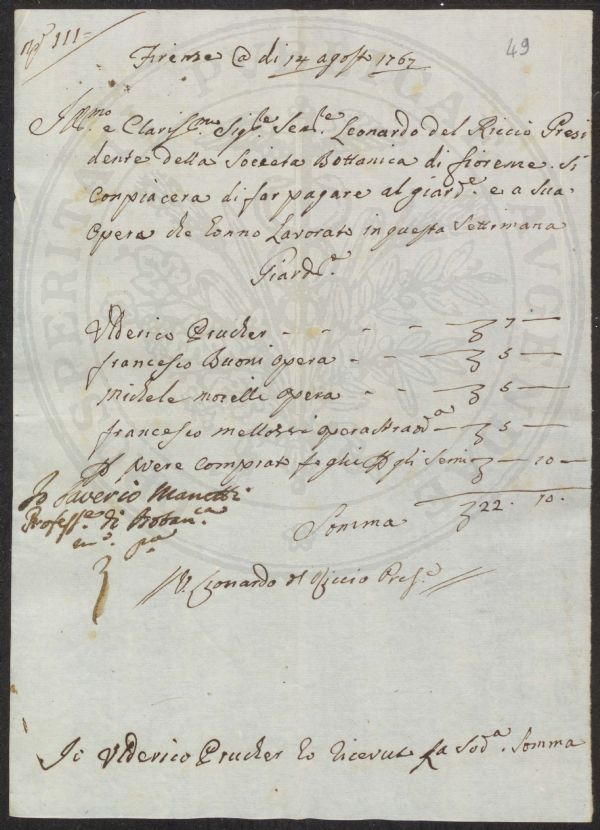 N.º 111=
49
Firenze @ di 14 agosto 1767
Ill.mo e Clariss.mo Sig.le Sen.le Leonardo del Riccio Presi
dente della Societa Bottanica di fiorenze. Si
Conpiacera di far pagare al giard.e e a sua
Opera che Eonno Lavorato in questa Settimana
Giard.e
Ulderico Prucher - - - - 7 —
francesco Buoni opera - - 5 —
michele morelli opera - - 5 —
francesco mellossi opera straord.a — 5 —
P avere comprato fogli P gli Semi — 10 —
Io Saverio Manetti
Profess.e di Botan.ca
m.o p.a
Somma 22. 10.
V. Leonardo del Riccio Pres.e
Io Ulderico Prucher ho ricevuto La Sod.a Somma